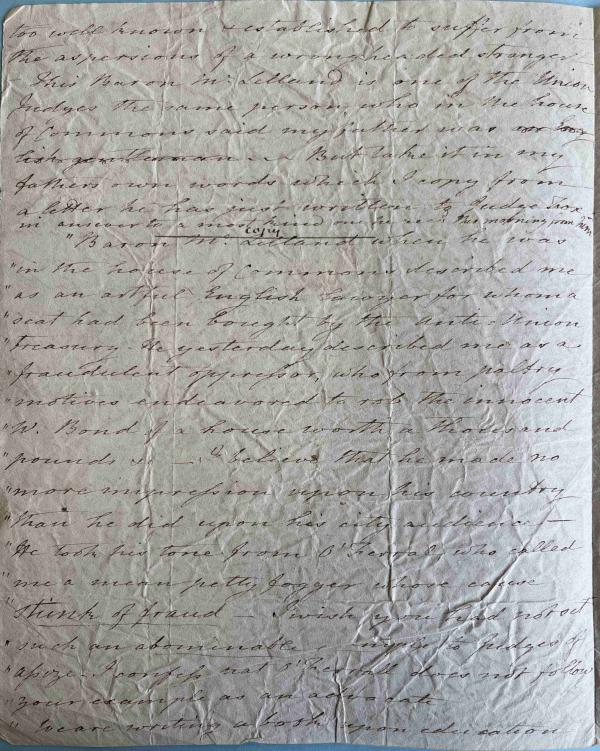 too well known & established to suffer from
the aspersions of a wrongheaded stranger
- This Baron McLelland is one of the Union
Judges the same person who in the house
of Commons said my father was
But take it in my
fathers own words which I copy from
a letter he has just written to Judge Fox
in answer to a most kind one he rec.d this morning from him
copy
"Baron McLelland when he was
"in the house of Commons described me
"as an artful English Lawyer for whom a
"seat had been bought by the Anti-Union
"treasury. He yesterday described me as a
"fraudulent oppressor, who from paltry
"motives endeavored to rob the innocent
"W. Bond of a house worth a thousand
"pounds - I believe that he made no
"more impression upon his country
"than he did upon his city audience -
"He took his tone from O'Ferrall, who called
"me a mean petty fogger whose cause
"stunk of fraud - I wish you had not set
"such an abominable to judges of
"assize. I confess that O'Ferrall does not follow
"your example as an advocate
"We are writing a book upon education